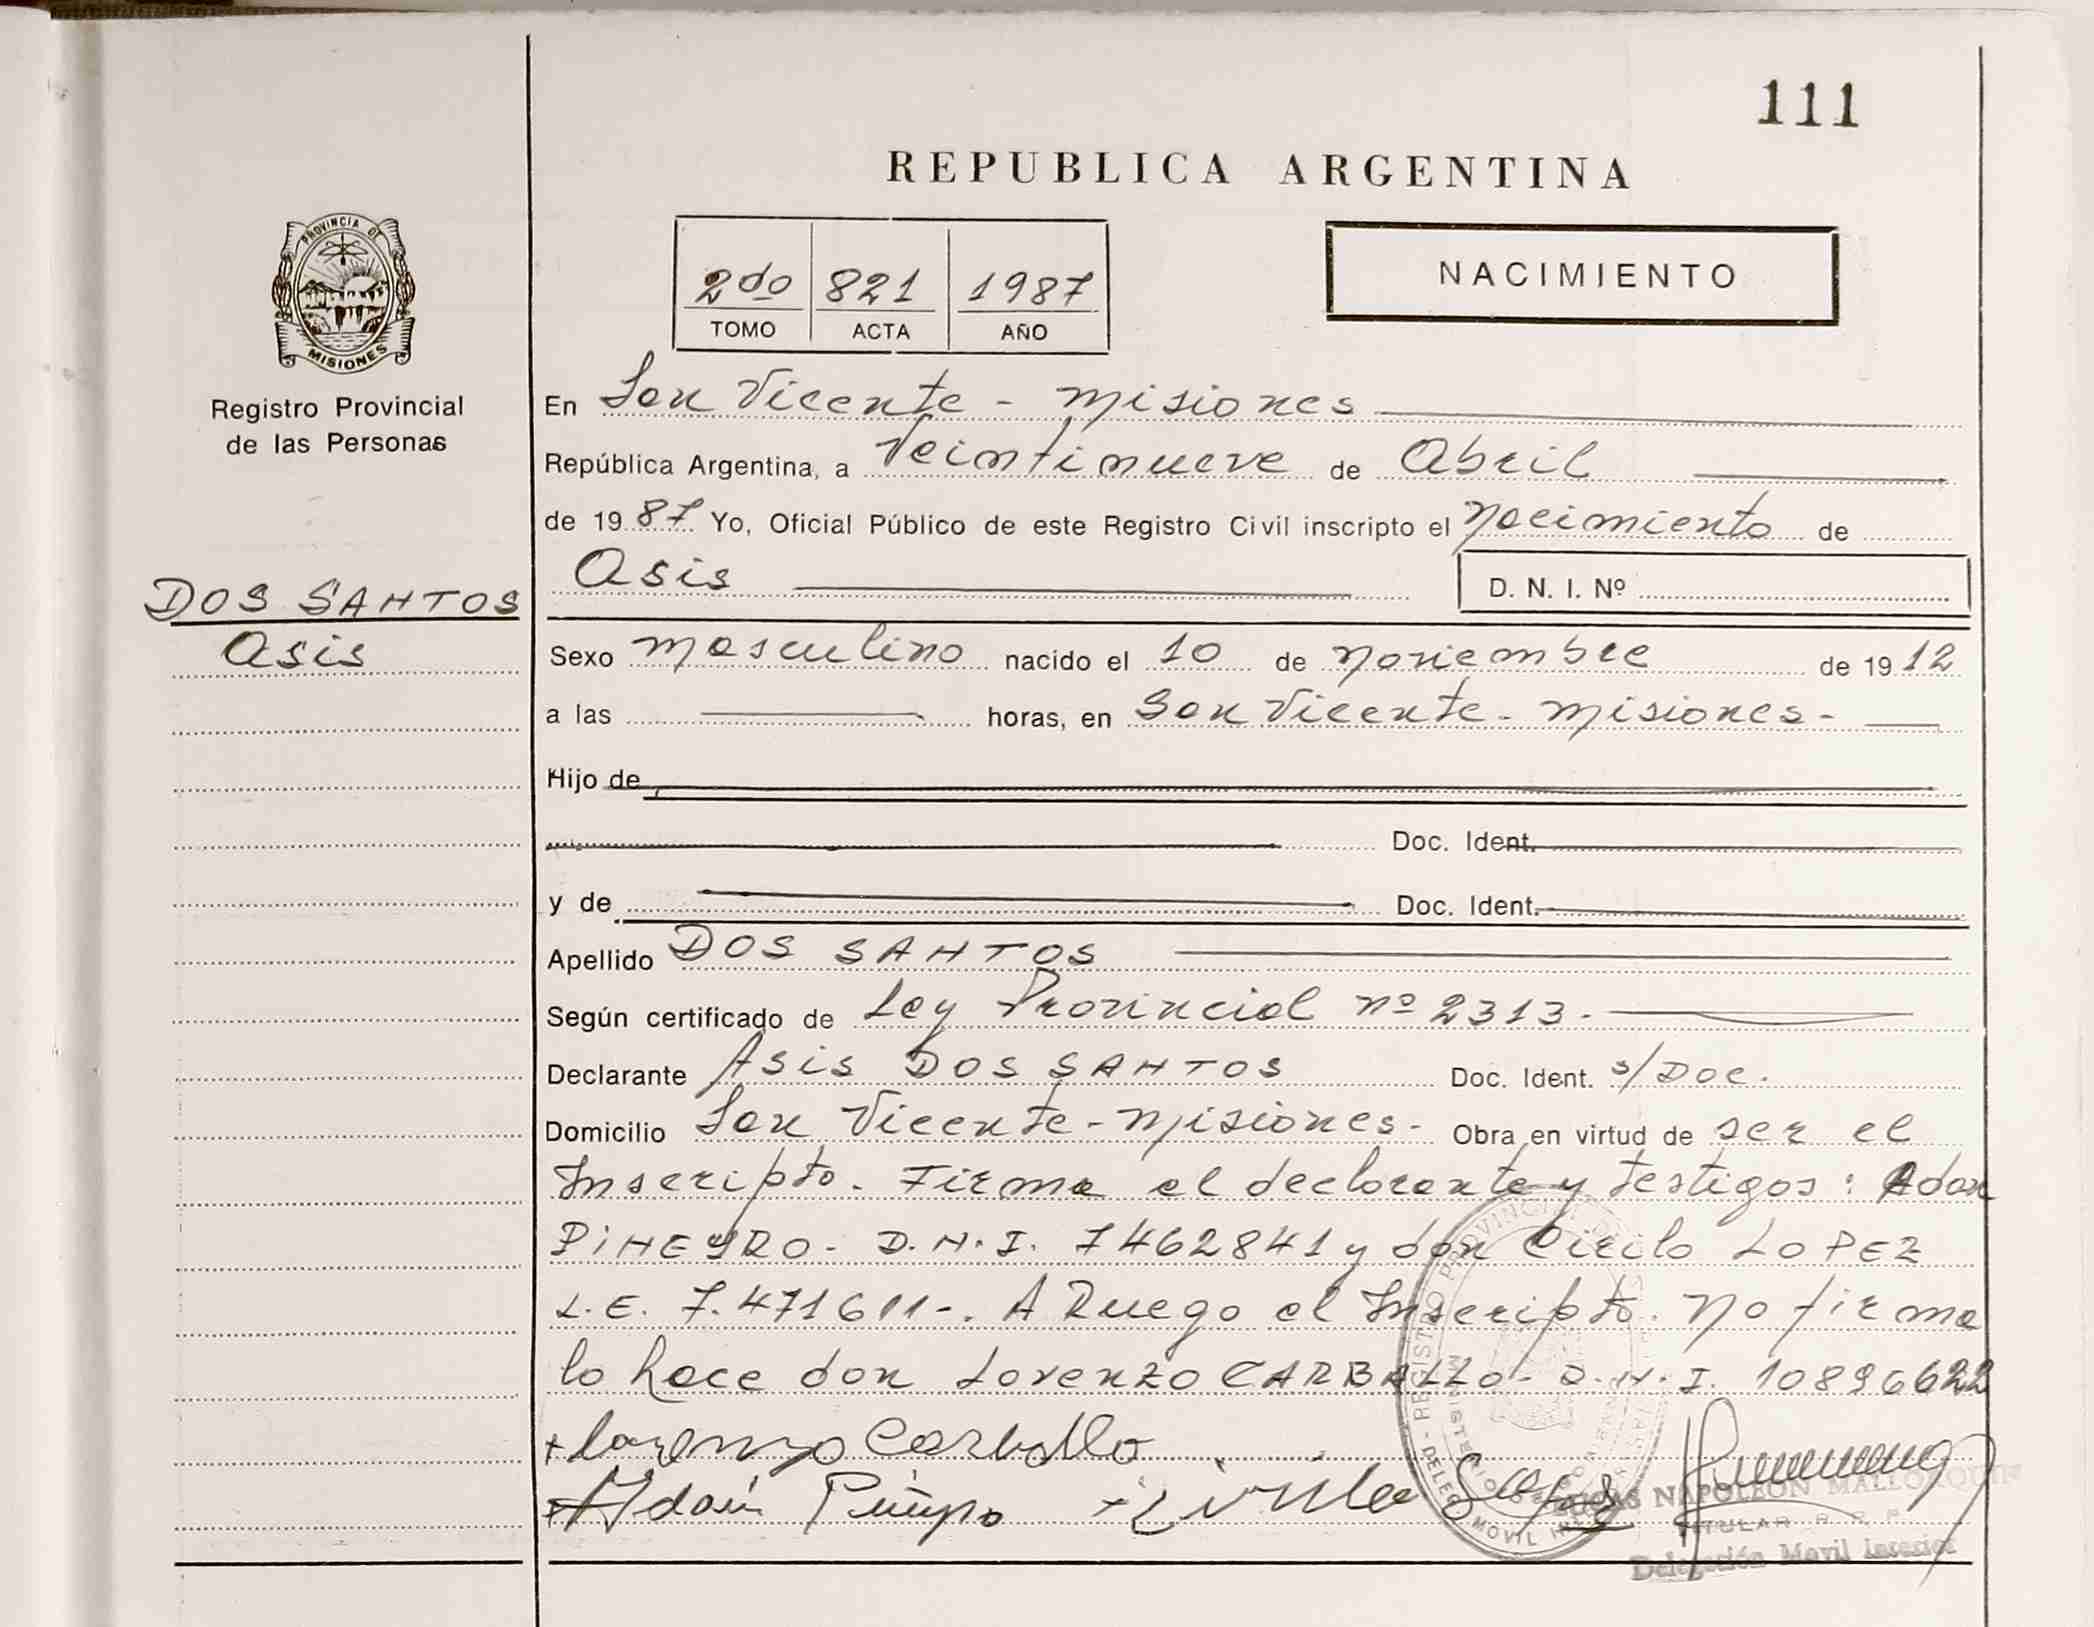 111
REPUBLICA ARGENTINA
PROVINCIA DE
MISIONES
Registro Provincial
de las Personas
2do 821 1987
TOMO ACTA AÑO
NACIMIENTO
En San Vicente - Misiones
República Argentina, a Veintinueve de Abril
de 1987 Yo, Oficial Público de este Registro Civil inscripto el Nacimiento de
Asis D. N. I. Nº
DOS SANTOS
Asis
Sexo Masculino nacido el 10 de Noviembre de 1912
a las horas, en San Vicente - Misiones -
Hijo de
Doc. Ident.
y de Doc. Ident.
Apellido DOS SANTOS
Según certificado de Ley Provincial nº 2313.
Declarante Asis DOS SANTOS Doc. Ident. s/Doc.
Domicilio San Vicente - Misiones - Obra en virtud de ser el
Inscripto. Firma el declarante y testigos: Adan
PIÑEYRO - D.N.I. 7462841 y don Cirilo LOPEZ
L.E. 7.471611-. A Ruego el Inscripto. No firma
lo hace don Lorenzo CARBALLO - D.N.I. 10896622
+ Lorenzo Carballo
+ Adan
NAPOLEON MALLORQUIN
TITULAR R. R. P.
Delegación Movil Interior